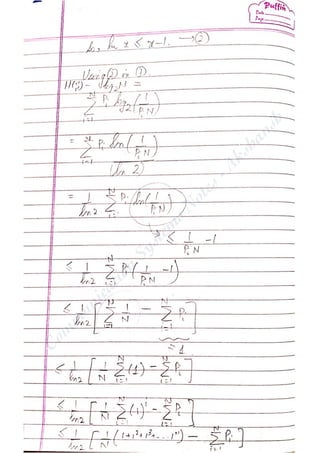 Puffin
Date
Page
ln x ≤ x-1. → ②
Using ② in ①
H(·) - log₂ N =
N Σ i=1 Pᵢ log₂ (1/(Pᵢ N))
= N Σ i=1 Pᵢ ln (1/(Pᵢ N)) / (ln 2)
= 1/ln 2 N Σ i=1 Pᵢ (ln (1/(Pᵢ N)))
≤ 1/(Pᵢ N) - 1
≤ 1/ln 2 N Σ i=1 Pᵢ (1/(Pᵢ N) - 1)
≤ 1/ln 2 [ N Σ i=1 1/N - N Σ i=1 Pᵢ ]
= 1
≤ 1/ln 2 [ 1/N N Σ i=1 (1) - N Σ i=1 Pᵢ ]
≤ 1/ln 2 [ 1/N N Σ i=1 (1)ⁱ - N Σ i=1 Pᵢ ]
≤ 1/ln 2 [ 1/N (1+1²+1³+...1ᴺ) - N Σ i=1 Pᵢ ]